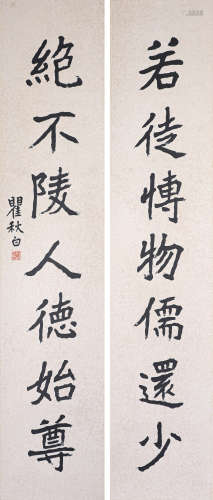 若徒博物儒還少
絕不陵人德始尊
瞿秋白